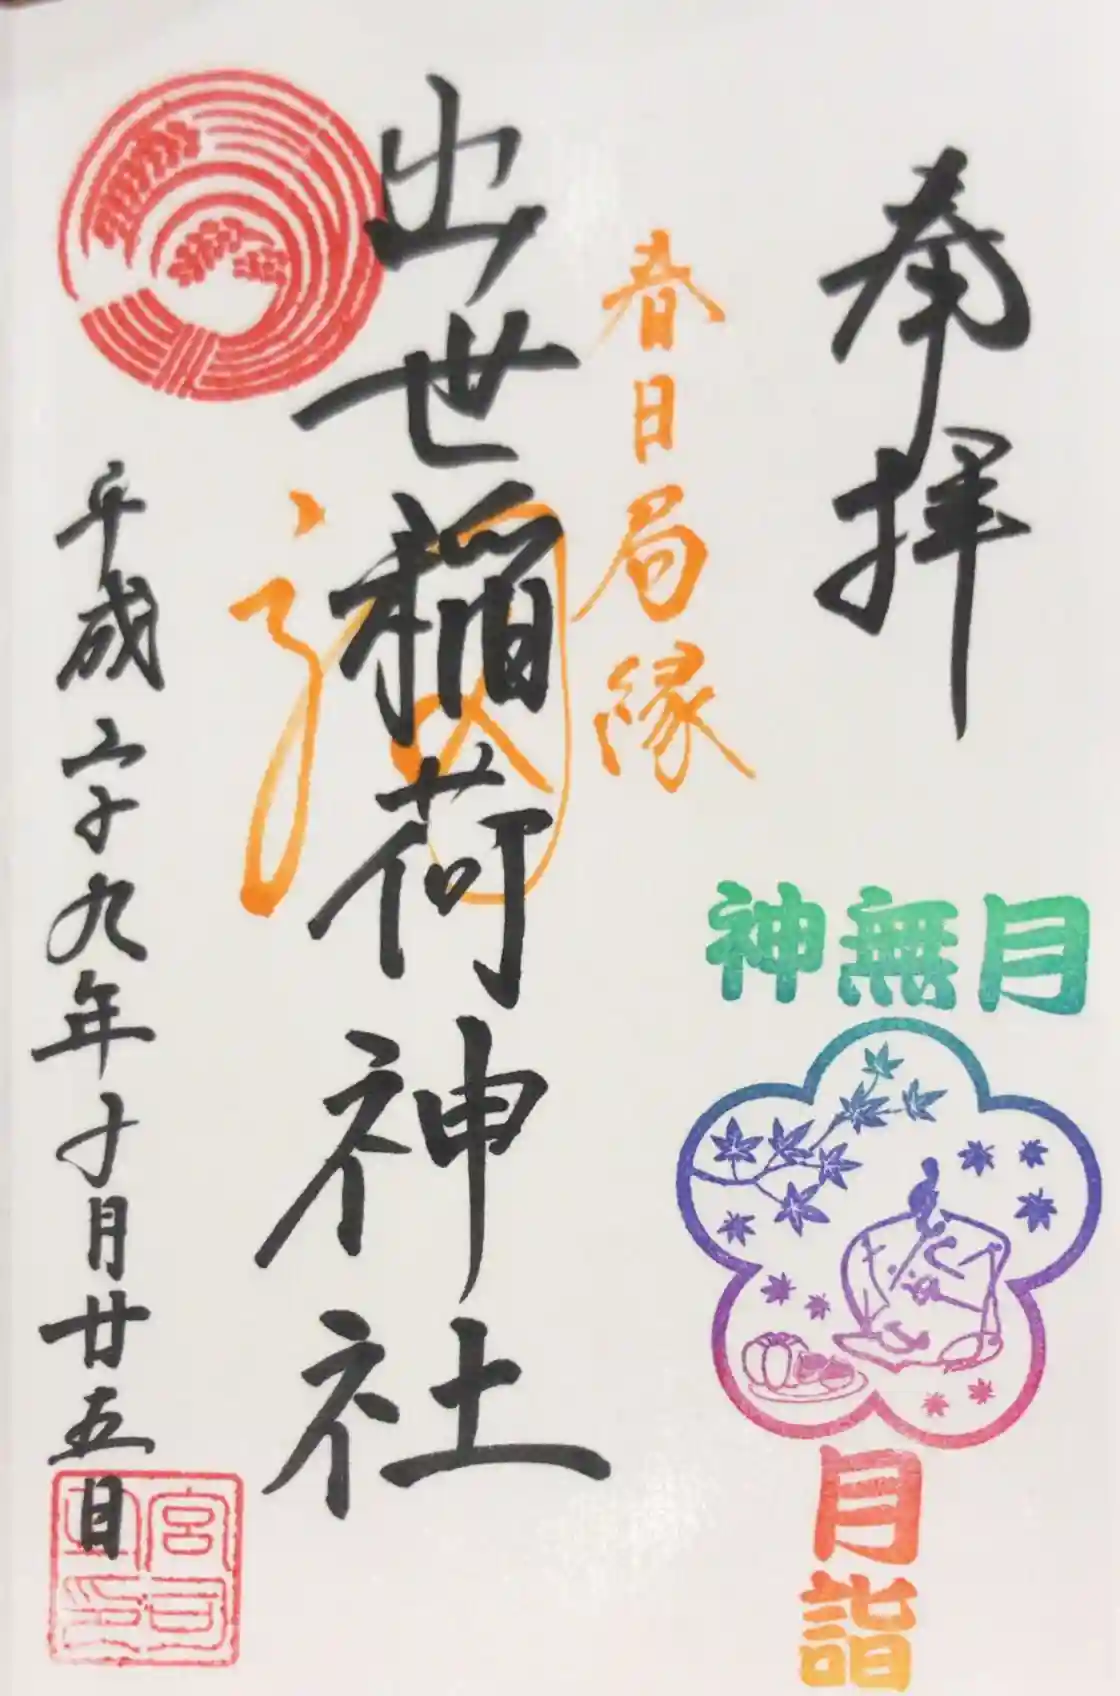 奉拝
神無月
月詣
春日局縁
出世稲荷神社
平成二十九年十月廿五日
宮司
之印